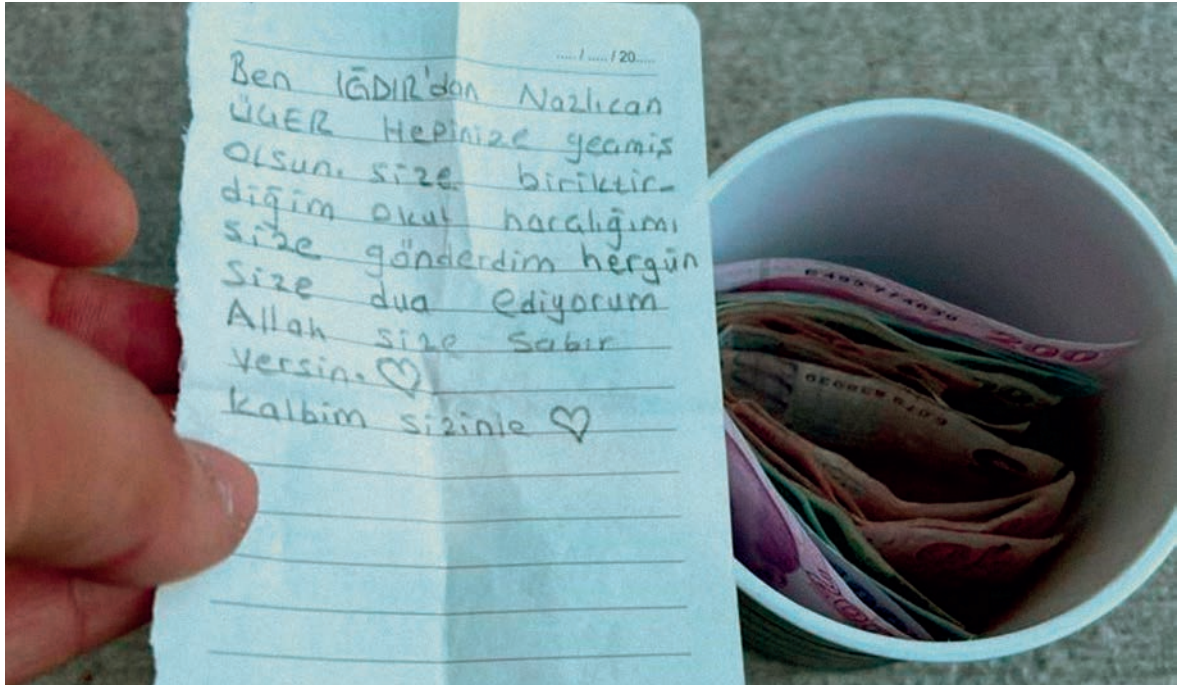 ...../...../20.....
Ben IĞDIR'dan Nazlıcan
ÜGER Hepinize geçmiş
Olsun. size biriktir-
diğim okul harçlığımı
size gönderdim hergün
Size dua ediyorum
Allah size Sabır
Versin. ♡
kalbim sizinle ♡
200
200